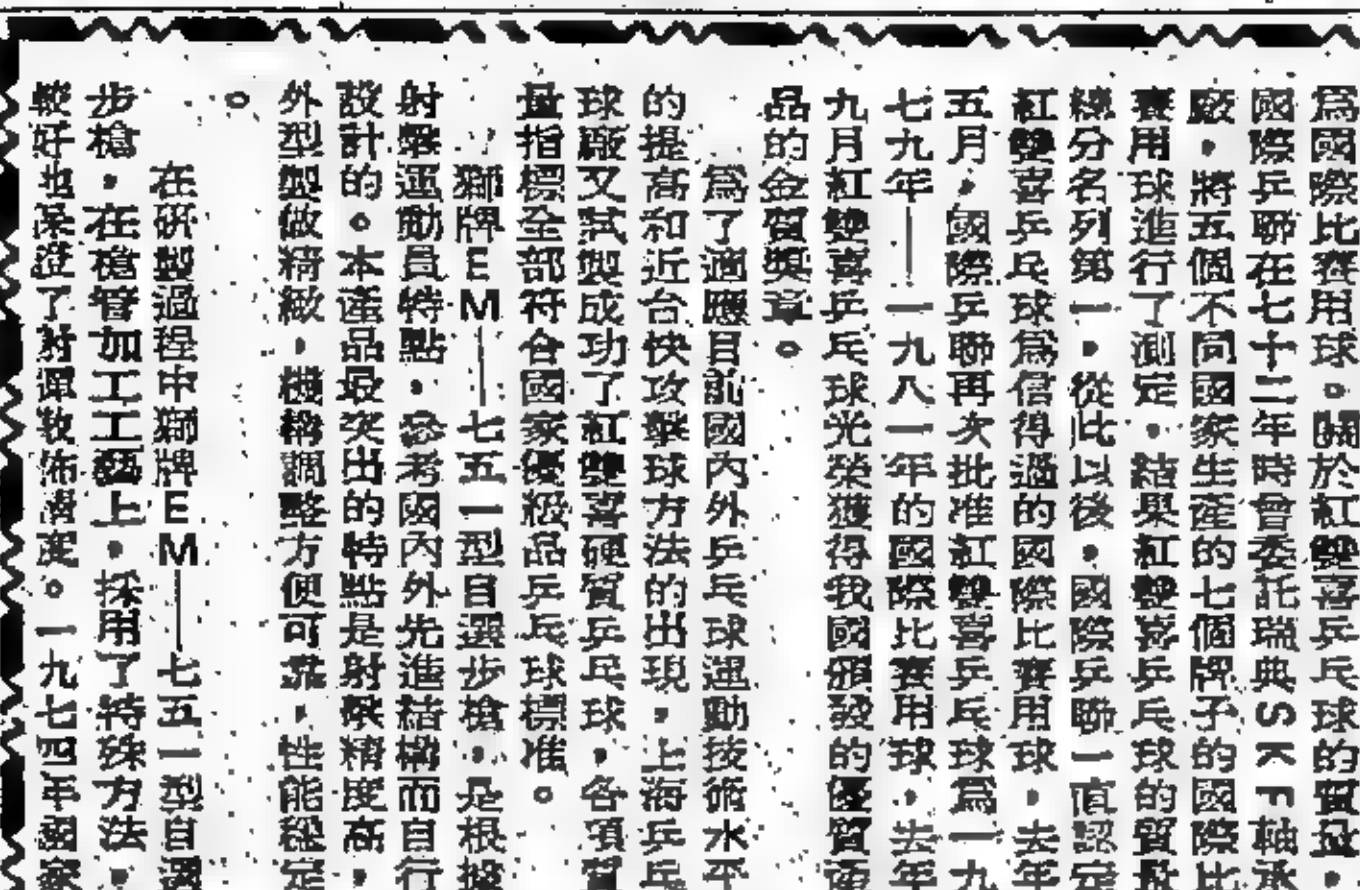 爲國際比賽用球。關於紅雙喜乒乓球的質量，
國際乒聯在七十二年時曾委託瑞典SKF軸承
廠，將五個不同國家生產的七個牌子的國際比
賽用球進行了測定，結果紅雙喜乒乓球的質量
總分名列第一，從此以後，國際乒聯一直認定
紅雙喜乒乓球爲信得過的國際比賽用球，去年
五月，國際乒聯再次批准紅雙喜乒乓球爲一九
七九年——一九八一年的國際比賽用球，去年
九月紅雙喜乒乓球光榮獲得我國頒發的優質產
品的金質獎章。
爲了適應目前國內外乒乓球運動技術水平
的提高和近台快攻擊球方法的出現，上海乒乓
球廠又試製成功了紅雙喜硬質乒乓球，各項質
量指標全部符合國家優級品乒乓球標准。
獅牌EM——七五一型自選步槍，是根據
射擊運動員特點，參考國內外先進結構而自行
設計的。本產品最突出的特點是射擊精度高，
外型製做精緻，機構調整方便可靠，性能穩定
。
在研製過程中獅牌EM——七五一型自選
步槍，在槍管加工工藝上，採用了特殊方法，
較好地保證了射彈散佈密度。一九七四年國家